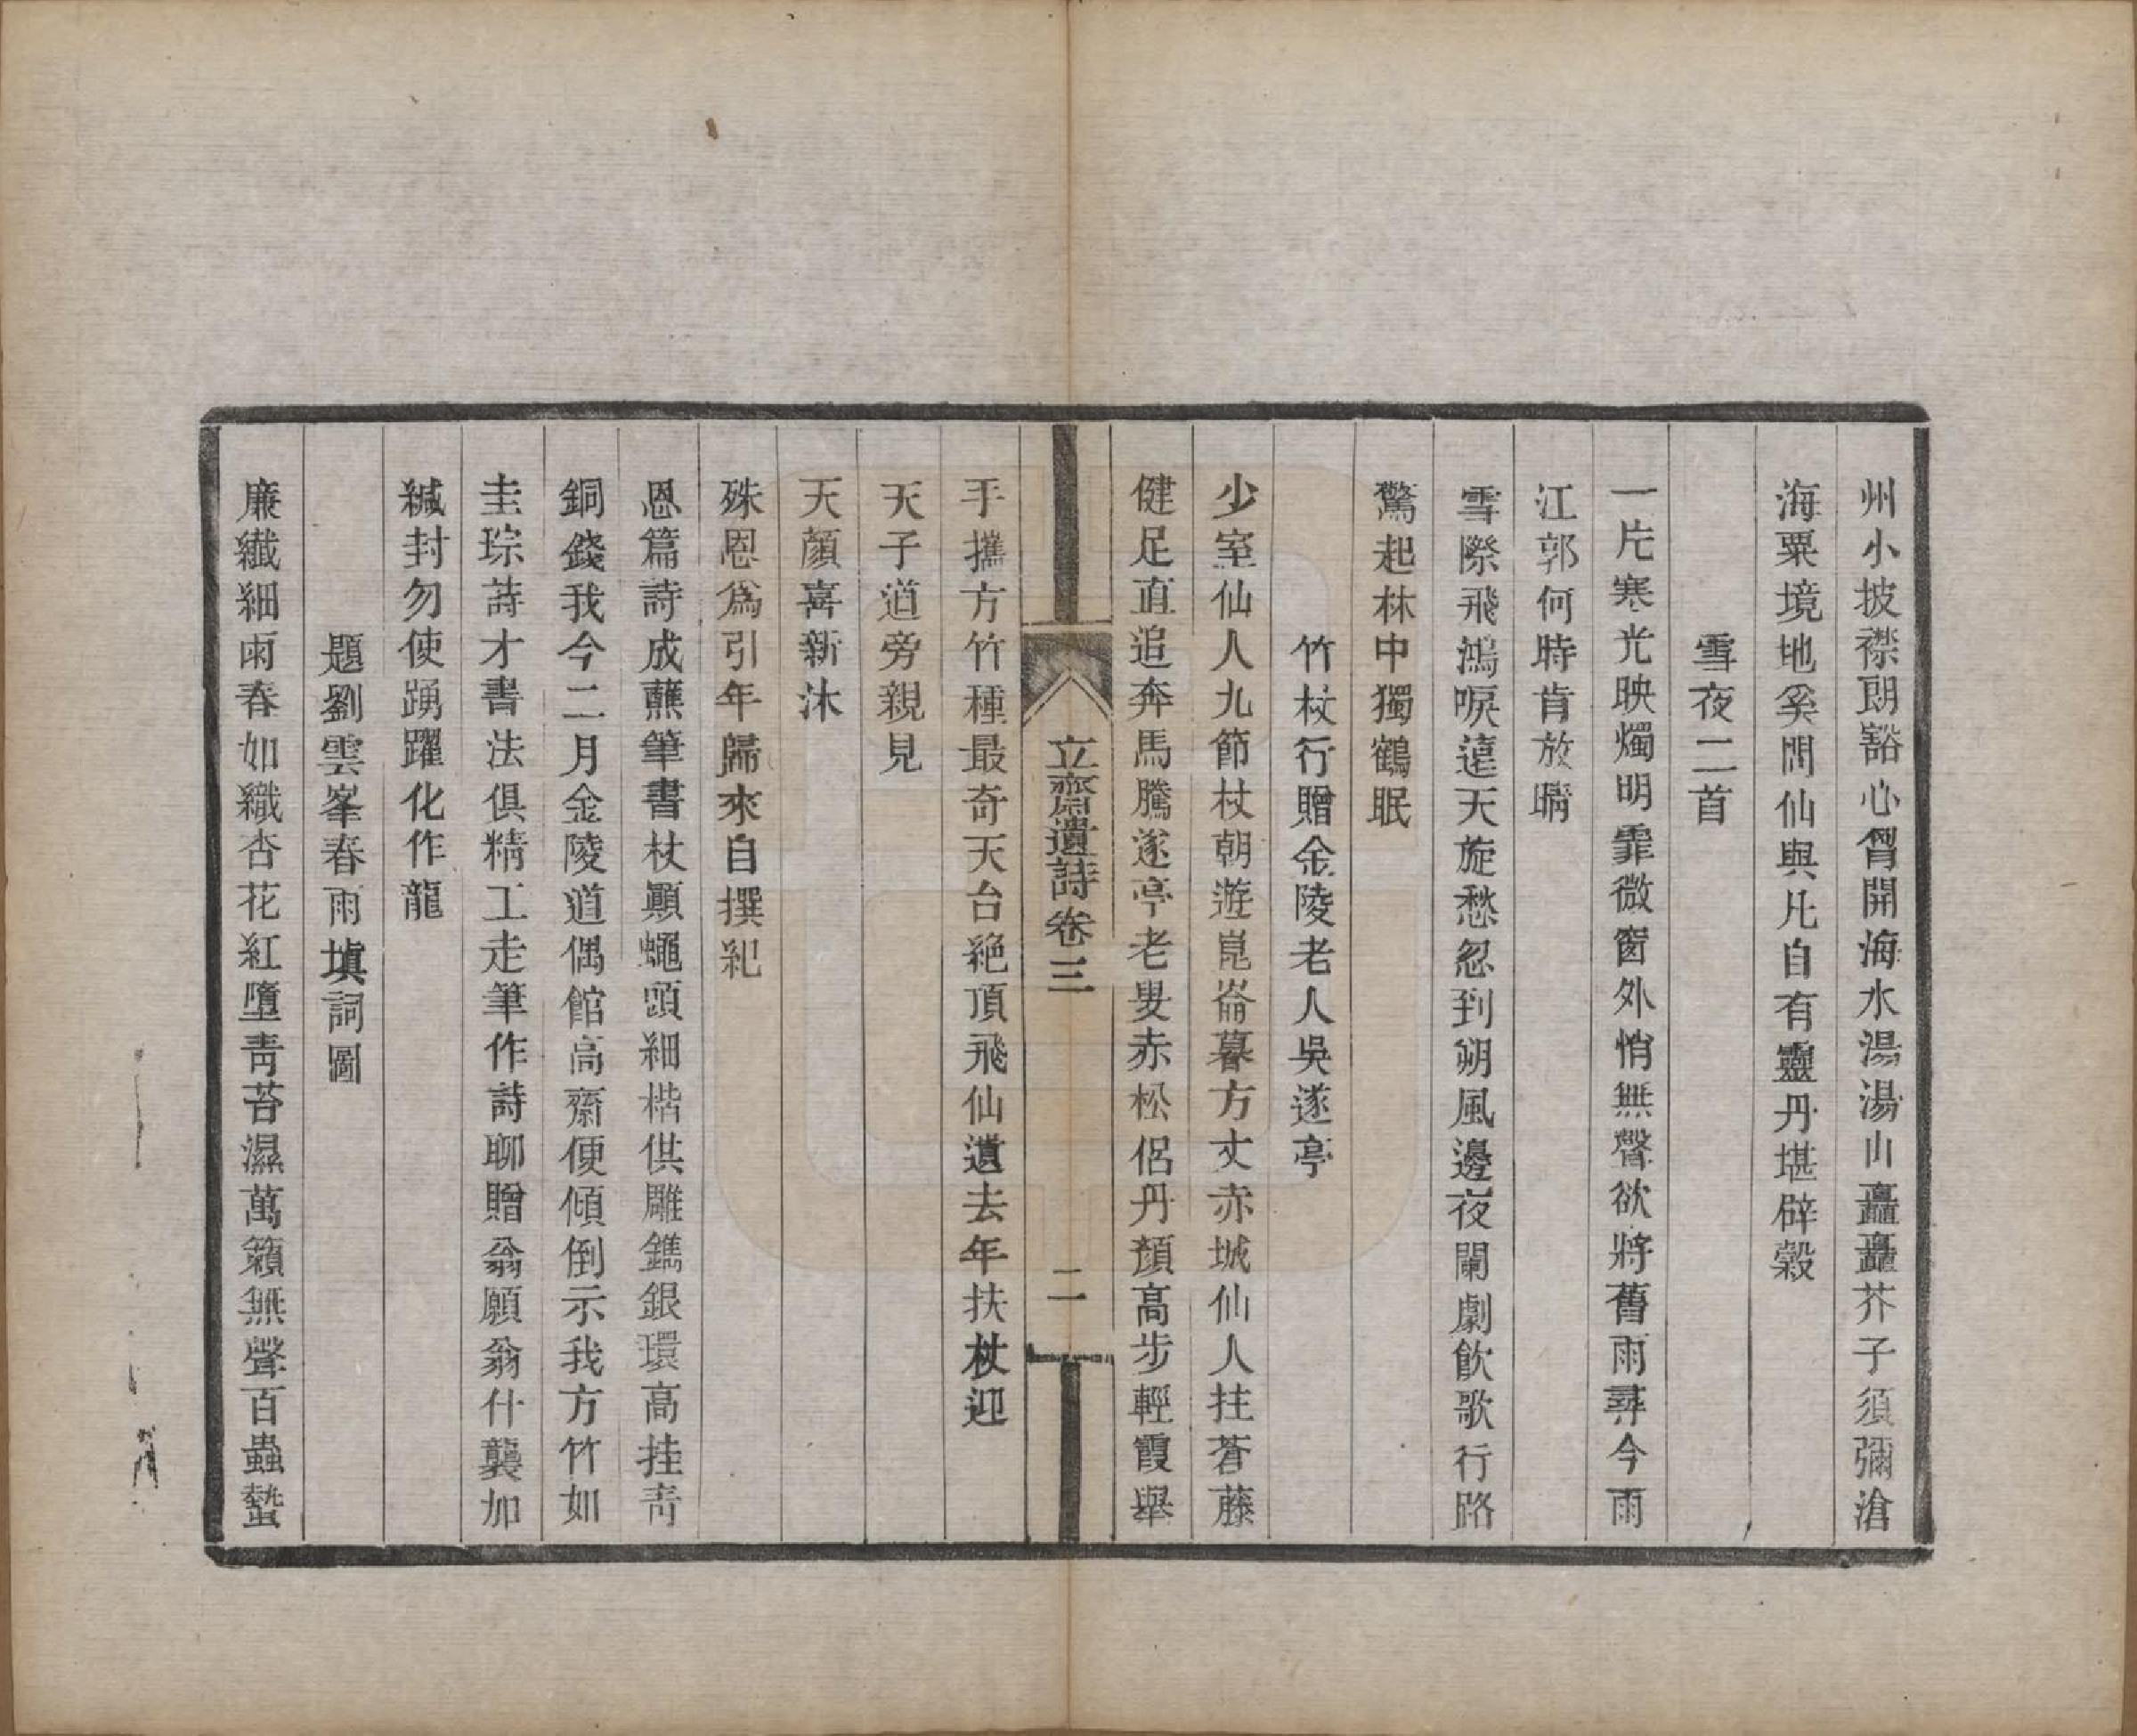 州小披襟朗豁心胷開海水湯湯山矗矗芥子須彌滄
海粟境地奚問仙與凡自有靈丹堪辟穀
雪夜二首
一片寒光映燭明霏微窗外悄無聲欲將舊雨尋今雨
江郭何時肯放晴
雪際飛鴻唳遠天旋愁忽到朔風邊夜闌劇飲歌行路
驚起林中獨鶴眠
竹杖行贈金陵老人吳遂亭
少室仙人九節杖朝遊崑崙暮方丈赤城仙人拄蒼藤
健足直追奔馬騰遂亭老叟赤松侶丹顏高步輕霞舉
立齋遺詩卷三
二
手攜方竹種最奇天台絕頂飛仙遺去年扶杖迎
天子道旁親見
天顏喜新沐
殊恩爲引年歸來自撰紀
恩篇詩成蘸筆書杖顚蠅頭細楷供雕鐫銀環高挂靑
銅錢我今二月金陵道偶館高齋便傾倒示我方竹如
圭琮詩才書法俱精工走筆作詩聊贈翁願翁什襲加
緘封勿使踴躍化作龍
題劉雲峯春雨塡詞圖
廉纖細雨春如織杏花紅墮靑苔濕萬籟無聲百蟲蟄